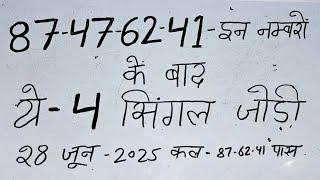 87-47-62-41-इन नम्बरों
के बाद
ये-4 सिंगल जोड़ी
28 जून-2025 कल-87-62-41 पास